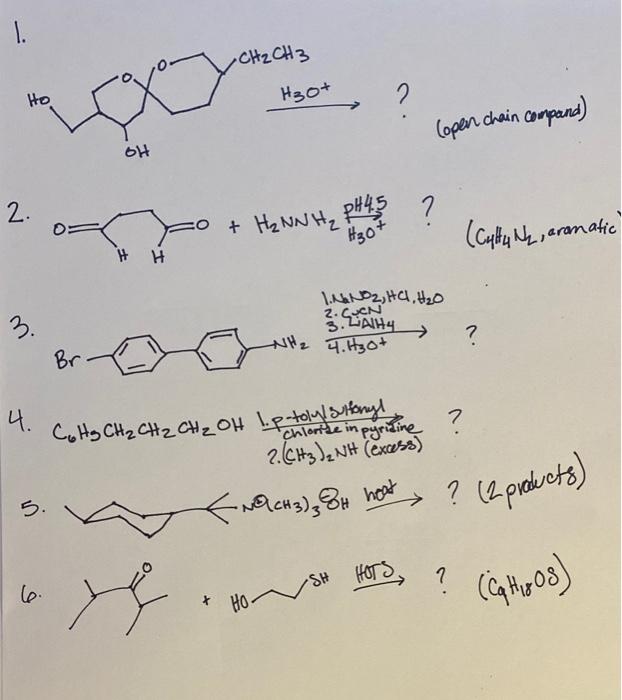 1.
O O CH2CH3
HO
OH
H3O+ ?
(open chain compound)
2.
O O + H2NNH2 pH4.5 ?
H H
H3O+
(C4H4N2, aromatic)
3.
1. NaNO2, HCl, H2O
2. CuCN
3. LiAlH4
4. H3O+
Br NH2 ?
4. C6H5CH2CH2CH2OH 1. p-tolylsulfonyl
chloride in pyridine
2. (CH3)2NH (excess)
?
5. N⊕(CH3)3 ⊖OH heat ? (2 products)
6. O + HO SH HOTS ? (C9H18OS)